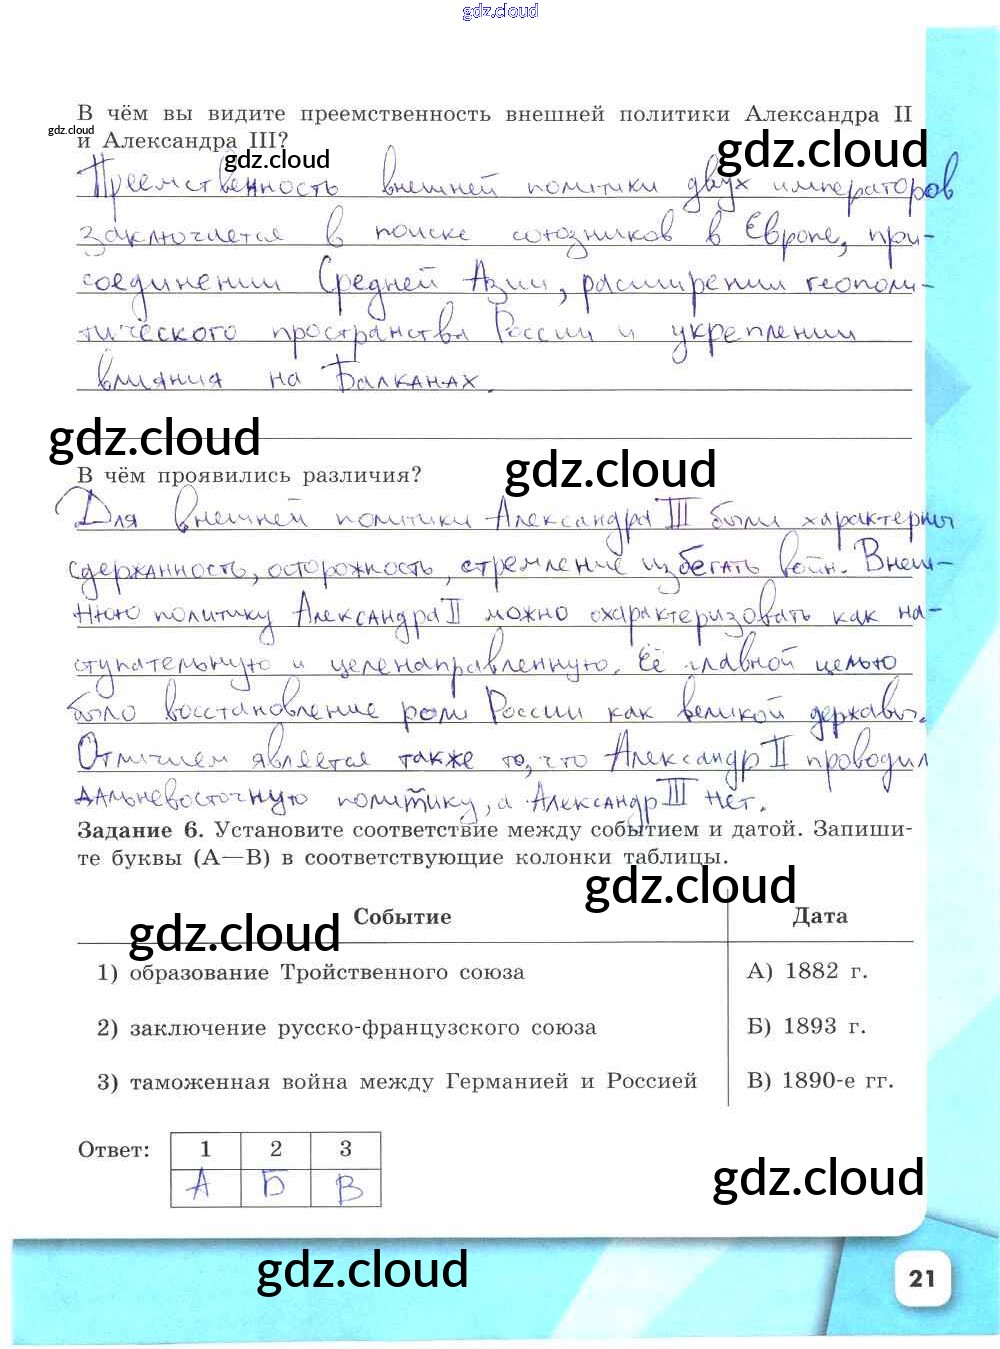 gdz.cloud
В чём вы видите преемственность внешней политики Александра II
gdz.cloud
и Александра III?
gdz.cloud
gdz.cloud
Преемственность внешней политики двух императоров
заключается в поиске союзников в Европе, при-
соединении Средней Азии, расширении геополи-
тического пространства России и укреплении
влияния на Балканах.
gdz.cloud
gdz.cloud
В чём проявились различия?
Для внешней политики Александра III были характерны
сдержанность, осторожность, стремление избегать войн. Внеш-
нюю политику Александра II можно охарактеризовать как на-
ступательную и целенаправленную. Её главной целью
было восстановление роли России как великой державы.
Отличием является также то, что Александр II проводил
дальневосточную политику, а Александр III нет.
Задание 6. Установите соответствие между событием и датой. Запиши-
те буквы (А—В) в соответствующие колонки таблицы.
gdz.cloud
gdz.cloud
Событие Дата
1) образование Тройственного союза А) 1882 г.
2) заключение русско-французского союза Б) 1893 г.
3) таможенная война между Германией и Россией В) 1890-е гг.
Ответ: 1 2 3
А Б В
gdz.cloud
gdz.cloud
21